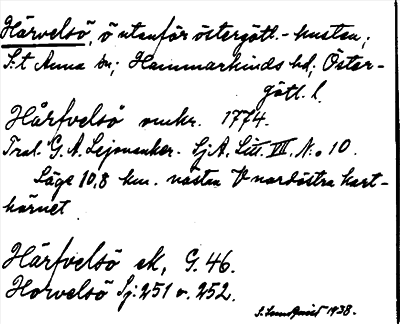 Härvelsö, ö utanför östergötl.-kusten;
S:t Anna sn; Hammarkinds hd; Öster-
götl. l.
Hårfvelsö omkr. 1774.
Trol. G. A. Lejonanker. SjA. Litt. VII. N:o 10.
Läge 10,8 km. nästan V nordöstra kart-
hörnet
Härfvelsö ek, G. 46.
Horvelsö Sj: 251 o. 252.
S. Lundqvist 1938.